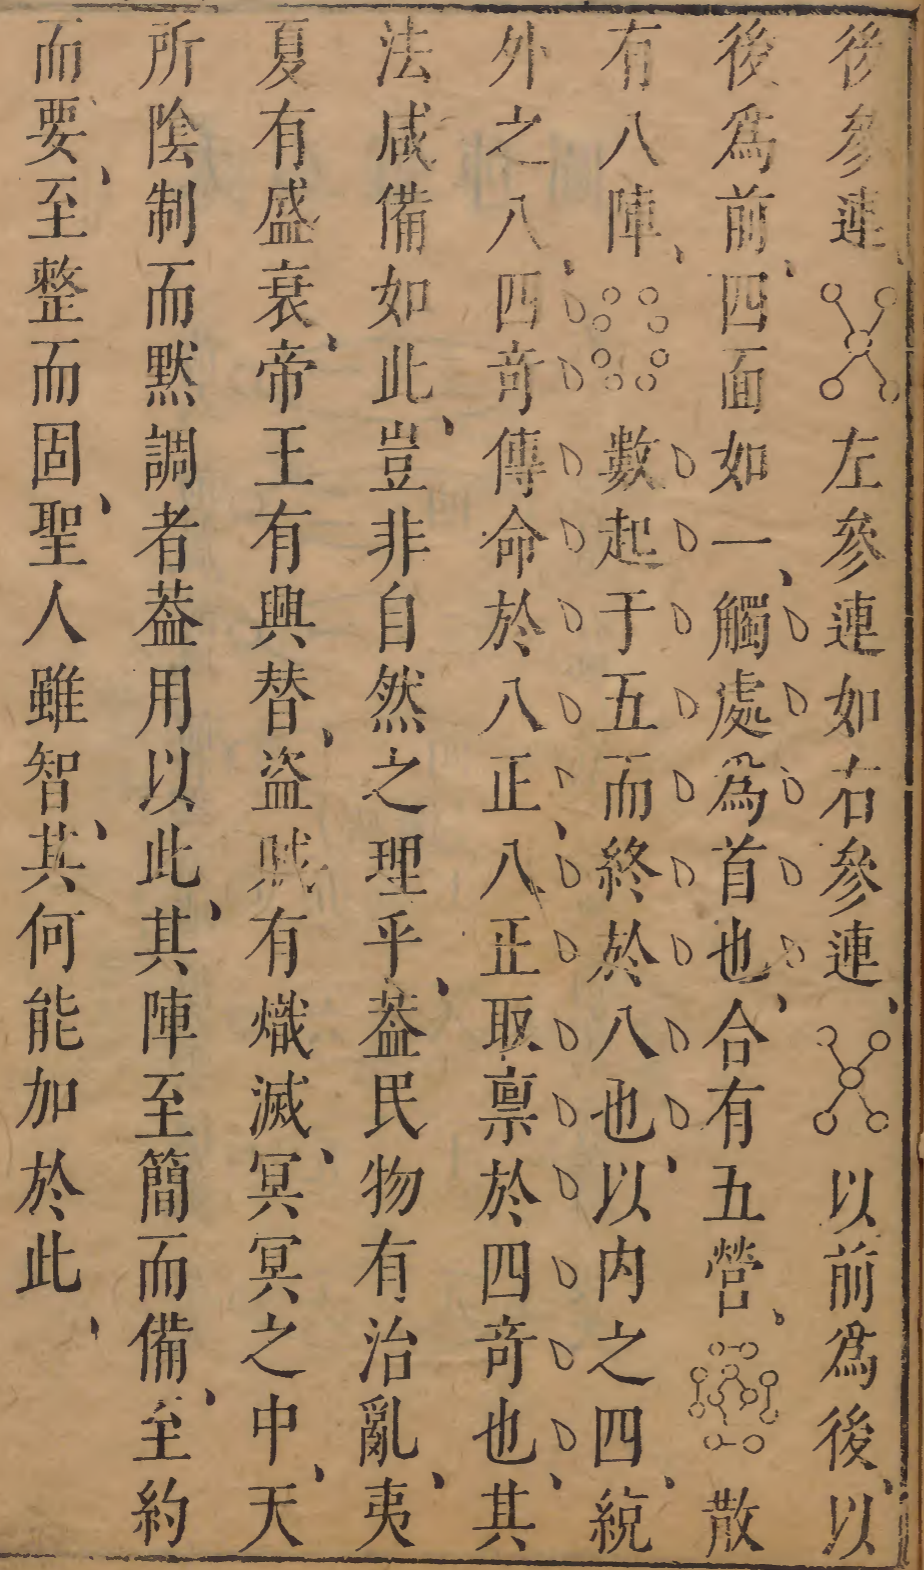 後參連左參連如右參連以前爲後以
後爲前四面如一觸處爲首也合有五營散
有八陣數起于五而終於八也以内之四統
外之八四竒傳命於八正八正取禀於四竒也其
法咸備如此豈非自然之理乎葢民物有治亂夷
夏有盛衰帝王有興替盗賊有熾滅冥冥之中天
所陰制而默調者葢用以此其陣至簡而備至約
而要至整而固聖人雖智其何能加於此